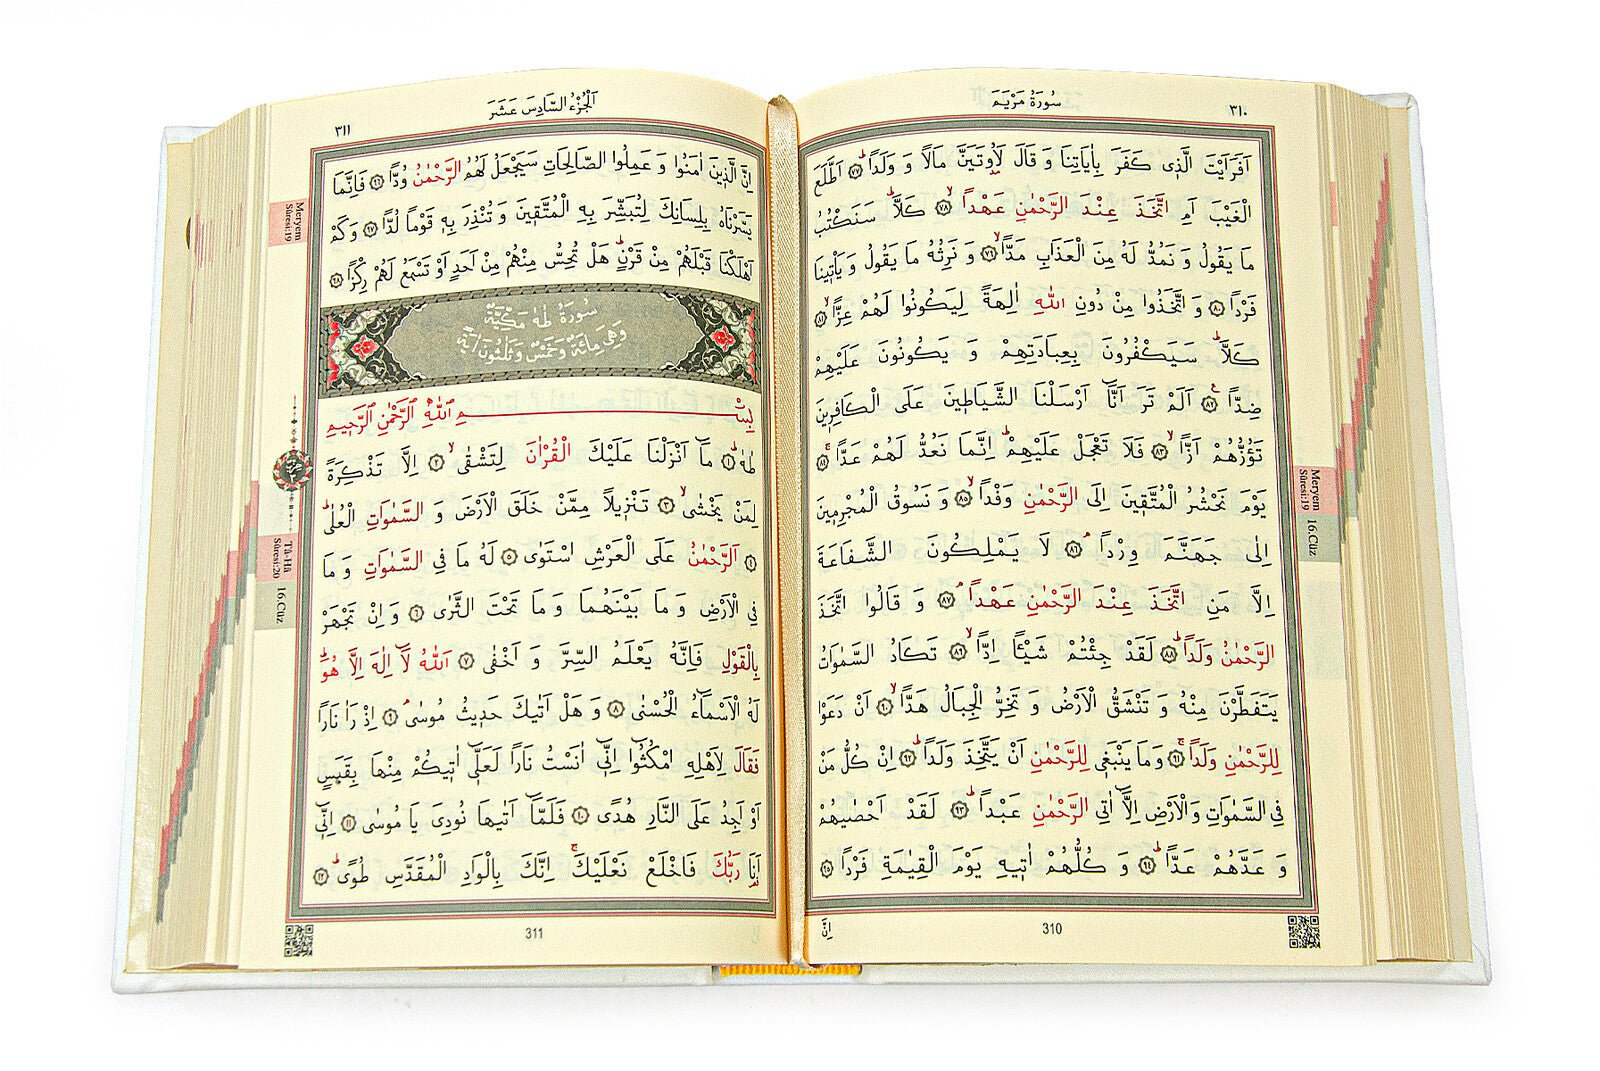 سُورَةُ مَرْيَمَ
٣١٠
اَفَرَاَيْتَ الَّذٖى كَفَرَ بِاٰيَاتِنَا وَ قَالَ لَاُوتَيَنَّ مَالاً وَ وَلَداًؕ ۝٧٧ اَطَّلَعَ
الْغَيْبَ اَمِ اتَّخَذَ عِنْدَ الرَّحْمٰنِ عَهْداًۙ ۝٧٨ كَلَّاؕ سَنَكْتُبُ
مَا يَقُولُ وَ نَمُدُّ لَهُ مِنَ الْعَذَابِ مَدّاًۙ ۝٧٩ وَ نَرِثُهُ مَا يَقُولُ وَ يَاْتٖينَا
فَرْداً ۝٨٠ وَ اتَّخَذُوا مِنْ دُونِ اللّٰهِ اٰلِهَةً لِيَكُونُوا لَهُمْ عِزّاًۙ ۝٨١
كَلَّاؕ سَيَكْفُرُونَ بِعِبَادَتِهِمْ وَ يَكُونُونَ عَلَيْهِمْ
ضِدّاًؑ ۝٨٢ اَلَمْ تَرَ اَنَّٓا اَرْسَلْنَا الشَّيَاطٖينَ عَلَى الْكَافِرٖينَ
تَؤُزُّهُمْ اَزّاًۙ ۝٨٣ فَلَا تَعْجَلْ عَلَيْهِمْؕ اِنَّمَا نَعُدُّ لَهُمْ عَدّاًۚ ۝٨٤
يَوْمَ نَحْشُرُ الْمُتَّقٖينَ اِلَى الرَّحْمٰنِ وَفْداًۙ ۝٨٥ وَ نَسُوقُ الْمُجْرِمٖينَ
اِلٰى جَهَنَّمَ وِرْداًۢ ۝٨٦ لَا يَمْلِكُونَ الشَّفَاعَةَ
اِلَّا مَنِ اتَّخَذَ عِنْدَ الرَّحْمٰنِ عَهْداًۢ ۝٨٧ وَ قَالُوا اتَّخَذَ
الرَّحْمٰنُ وَلَداًؕ ۝٨٨ لَقَدْ جِئْتُمْ شَيْـٔاً اِدّاًۙ ۝٨٩ تَكَادُ السَّمٰوَاتُ
يَتَفَطَّرْنَ مِنْهُ وَ تَنْشَقُّ الْاَرْضُ وَ تَخِرُّ الْجِبَالُ هَدّاًۙ ۝٩٠ اَنْ دَعَوْا
لِلرَّحْمٰنِ وَلَداًۚ ۝٩١ وَمَا يَنْبَغٖى لِلرَّحْمٰنِ اَنْ يَتَّخِذَ وَلَداًؕ ۝٩٢ اِنْ كُلُّ مَنْ
فِى السَّمٰوَاتِ وَ الْاَرْضِ اِلَّٓا اٰتِى الرَّحْمٰنِ عَبْداًؕ ۝٩٣ لَقَدْ اَحْصٰيهُمْ
وَ عَدَّهُمْ عَدّاًؕ ۝٩٤ وَ كُلُّهُمْ اٰتٖيهِ يَوْمَ الْقِيٰمَةِ فَرْداً ۝٩٥
اِنَّ
310
Meryem
Sûresi:19
16.Cüz
اَلْجُزْءُ السَّادِسَ عَشَرَ
٣١١
اِنَّ الَّذٖينَ اٰمَنُوا وَ عَمِلُوا الصَّالِحَاتِ سَيَجْعَلُ لَهُمُ الرَّحْمٰنُ وُدّاً ۝٩٦ فَاِنَّمَا
يَسَّرْنَاهُ بِلِسَانِكَ لِتُبَشِّرَ بِهِ الْمُتَّقٖينَ وَ تُنْذِرَ بِهٖ قَوْماً لُدّاً ۝٩٧ وَ كَمْ
اَهْلَكْنَا قَبْلَهُمْ مِنْ قَرْنٍؕ هَلْ تُحِسُّ مِنْهُمْ مِنْ اَحَدٍ اَوْ تَسْمَعُ لَهُمْ رِكْزاً ۝٩٨
سُورَةُ طٰهٰ مَكِّيَّةٌ
وَهِىَ مِائَةٌ وَخَمْسٌ وَثَلٰثُونَ اٰيَةً
بِسْمِ اللّٰهِ الرَّحْمٰنِ الرَّحٖيمِ
طٰهٰؕ ۝١ مَٓا اَنْزَلْنَا عَلَيْكَ الْقُرْاٰنَ لِتَشْقٰىۙ ۝٢ اِلَّا تَذْكِرَةً
لِمَنْ يَخْشٰىۙ ۝٣ تَنْزٖيلاً مِمَّنْ خَلَقَ الْاَرْضَ وَ السَّمٰوَاتِ الْعُلٰىؕ
۝٤ اَلرَّحْمٰنُ عَلَى الْعَرْشِ اسْتَوٰى ۝٥ لَهُ مَا فِى السَّمٰوَاتِ وَ مَا
فِى الْاَرْضِ وَ مَا بَيْنَهُمَا وَ مَا تَحْتَ الثَّرٰى ۝٦ وَ اِنْ تَجْهَرْ
بِالْقَوْلِ فَاِنَّهُ يَعْلَمُ السِّرَّ وَ اَخْفٰى ۝٧ اَللّٰهُ لَٓا اِلٰهَ اِلَّا هُوَؕ
لَهُ الْاَسْمَٓاءُ الْحُسْنٰى ۝٨ وَ هَلْ اَتٰيكَ حَدٖيثُ مُوسٰىۢ ۝٩ اِذْ رَاٰ نَاراً
فَقَالَ لِاَهْلِهِ امْكُثُٓوا اِنّٖٓى اٰنَسْتُ نَاراً لَعَلّٖٓى اٰتٖيكُمْ مِنْهَا بِقَبَسٍ
اَوْ اَجِدُ عَلَى النَّارِ هُدًى ۝١٠ فَلَمَّٓا اَتٰيهَا نُودِىَ يَا مُوسٰى ۝١١ اِنّٖٓى
اَنَا رَبُّكَ فَاخْلَعْ نَعْلَيْكَۚ اِنَّكَ بِالْوَادِ الْمُقَدَّسِ طُوًىؕ ۝١٢
311
Meryem
Sûresi:19
Tâ-Hâ
Sûresi:20
16.Cüz